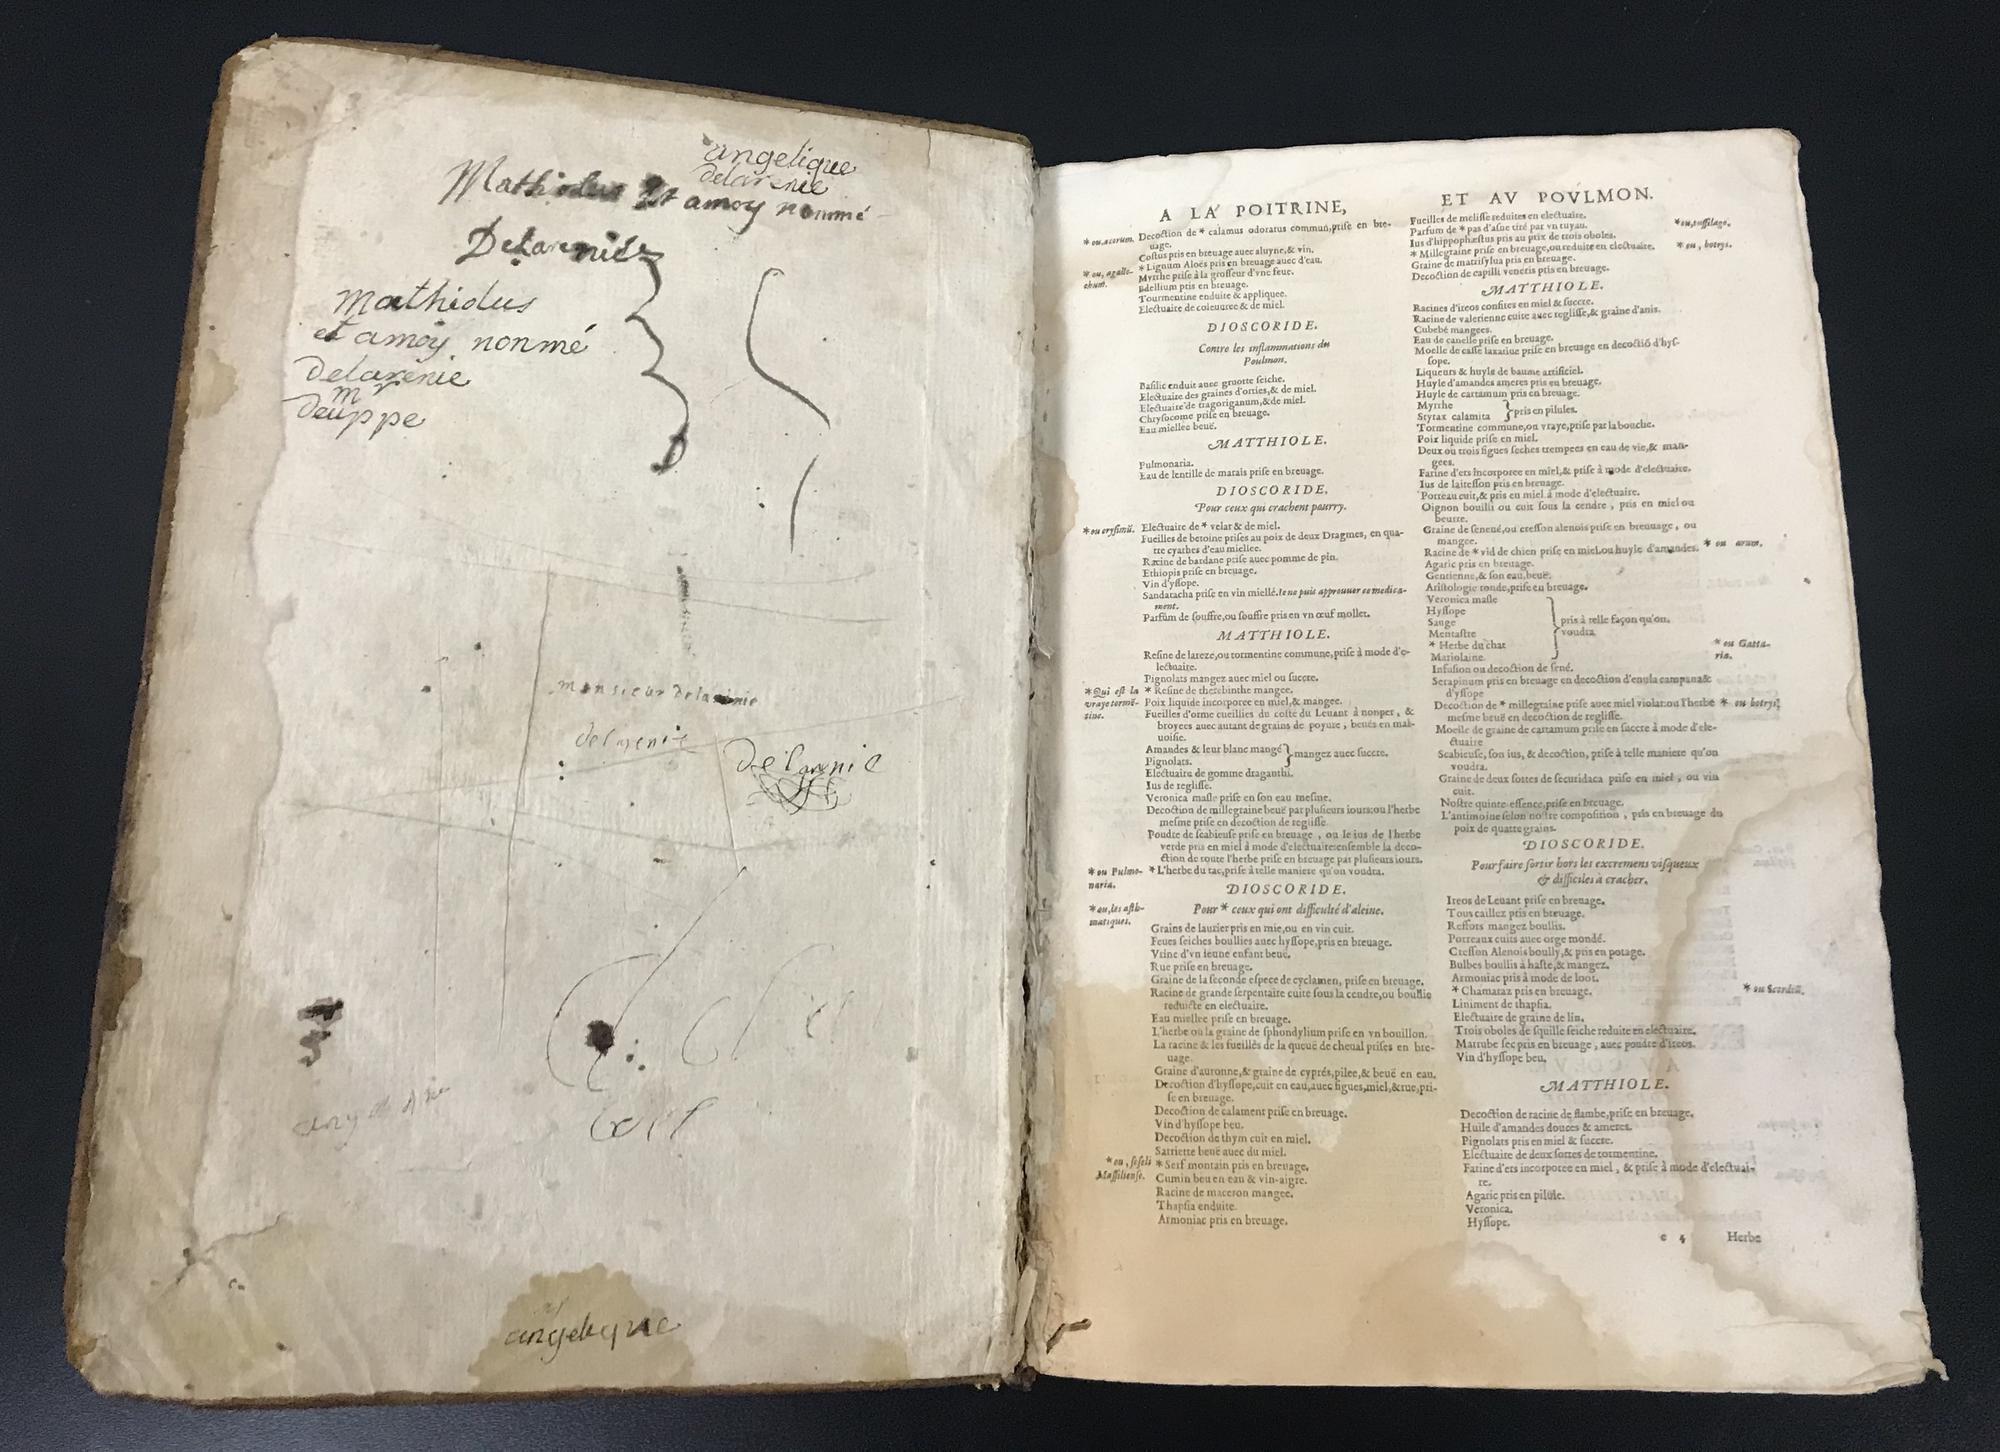 angelique
delarenie
Mathiolus Et amoy nommé
Delarenie
mathiolus
et amoy nonmé
delarenie
mr
deuppe
monsieur delarenie
delarenie
Delarenie
angelique
A LA POITRINE,
* ou, acorum.
Decoction de * calamus odoratus commun, prise en bre-
uage.
Costus pris en breuage auec aluyne, & vin.
* ou, agallo-
chum.
* Lignum Aloës pris en breuage auec d'eau.
Myrrhe prise à la grosseur d'vne feue.
Bdellium pris en breuage.
Tourmentine enduite & appliquee.
Electuaire de coleuuree & de miel.
DIOSCORIDE.
Contre les inflammations du
Poulmon.
Basilic enduit auec griotte seiche.
Electuaire des graines d'orties, & de miel.
Electuaire de tragoriganum, & de miel.
Chrysocome prise en breuage.
Eau miellee beuë.
MATTHIOLE.
Pulmonaria.
Eau de lentille de marais prise en breuage.
DIOSCORIDE.
Pour ceux qui crachent pourry.
* ou erysimũ.
Electuaire de * velar & de miel.
Fueilles de betoine prises au poix de deux Dragmes, en qua-
tre cyathes d'eau miellee.
Racine de bardane prise auec pomme de pin.
Ethiopis prise en breuage.
Vin d'yssope.
Sandaracha prise en vin miellé. Ie ne puis approuuer ce medica-
ment.
Parfum de souffre, ou souffre pris en vn œuf mollet.
MATTHIOLE.
Resine de lareze, ou tormentine commune, prise à mode d'e-
lectuaire.
Pignolats mangez auec miel ou succre.
* Qui est la
vraye tormẽ-
tine.
* Resine de therebinthe mangee.
Poix liquide incorporee en miel, & mangee.
Fueilles d'orme cueillies du costé du Leuant à nonper, &
broyees auec autant de grains de poyure, beuës en mal-
uoisie.
Amandes & leur blanc mangé } mangez auec succre.
Pignolats.
Electuaire de gomme draganthi.
Ius de reglisse.
Veronica masle prise en son eau mesme.
Decoction de millegraine beuë par plusieurs iours: ou l'herbe
mesme prise en decoction de reglisse.
Poudre de scabieuse prise en breuage, ou le ius de l'herbe
verde pris en miel à mode d'electuaire: ensemble la deco-
ction de toute l'herbe prise en breuage par plusieurs iours.
* ou Pulmo-
naria.
* L'herbe du tac, prise à telle maniere qu'on voudra.
DIOSCORIDE.
* ou, les asth-
matiques.
Pour * ceux qui ont difficulté d'aleine.
Grains de laurier pris en mie, ou en vin cuit.
Feues seiches boullies auec hyssope, pris en breuage.
Vrine d'vn ieune enfant beuë.
Rue prise en breuage.
Graine de la seconde espece de cyclamen, prise en breuage.
Racine de grande serpentaire cuite sous la cendre, ou boullie
reduicte en electuaire.
Eau miellee prise en breuage.
L'herbe ou la graine de sphondylium prise en vn bouillon.
La racine & les fueilles de la queuë de cheual prises en bre-
uage.
Graine d'auronne, & graine de cyprés, pilee, & beuë en eau.
Decoction d'hyssope, cuit en eau, auec figues, miel, & rue, pri-
se en breuage.
Decoction de calament prise en breuage.
Vin d'hyssope beu.
Decoction de thym cuit en miel.
Satriette beuë auec du miel.
* ou, seseli
Massiliense.
* Serf montain pris en breuage.
Cumin beu en eau & vin-aigre.
Racine de maceron mangee.
Thapsia enduite.
Armoniac pris en breuage.
ET AV POVLMON.
Fueilles de melisse reduites en electuaire.
Parfum de * pas d'asne tiré par vn tuyau.
* ou, tussilage.
Ius d'hippophæstus pris au prix de trois oboles.
* Millegraine prise en breuage, ou reduite en electuaire.
* ou, botrys.
Graine de matrisylua pris en breuage.
Decoction de capilli veneris pris en breuage.
MATTHIOLE.
Racines d'ireos confites en miel & succre.
Racine de valerienne cuite auec reglisse, & graine d'anis.
Cubebé mangees.
Eau de canelle prise en breuage.
Moelle de casse laxatiue prise en breuage en decoctiõ d'hys-
sope.
Liqueurs & huyle de baume artificiel.
Huyle d'amandes ameres pris en breuage.
Huyle de cartamum pris en breuage.
Myrrhe
Styrax calamita } pris en pilules.
Tormentine commune, ou vraye, prise par la bouche.
Poix liquide prise en miel.
Deux ou trois figues seches trempees en eau de vie, & man-
gees.
Farine d'ers incorporee en miel, & prise à mode d'electuaire.
Ius de laitesson pris en breuage.
Porreau cuit, & pris en miel à mode d'electuaire.
Oignon bouilli ou cuit sous la cendre, pris en miel ou
beurre.
Graine de seneué, ou cresson alenois prise en breuuage, ou
mangee.
Racine de * vid de chien prise en miel, ou huyle d'amandes.
* ou arum.
Agaric pris en breuage.
Gentienne, & son eau, beuë.
Aristologie ronde, prise en breuage.
Veronica masle
Hyssope
Sauge
Mentastre
* Herbe du chat
Mariolaine
} pris à telle façon qu'on
voudra
* ou Gatta-
ria.
Infusion ou decoction de sené.
Serapinum pris en breuage en decoction d'enula campana &
d'yssope
Decoction de * millegraine prise auec miel violat: ou l'herbe
* ou botrys.
mesme beuë en decoction de reglisse.
Moelle de graine de cartamum prise en succre à mode d'ele-
ctuaire
Scabieuse, son ius, & decoction, prise à telle maniere qu'on
voudra.
Graine de deux sortes de securidaca prise en miel, ou vin
cuit.
Nostre quinte essence, prise en breuage.
L'antimoine selon nostre composition, pris en breuage du
poix de quatre grains.
DIOSCORIDE.
Pour faire sortir hors les excremens visqueux
& difficiles à cracher.
Ireos de Leuant prise en breuage.
Tous caillez pris en breuage.
Reffors mangez boullis.
Porreaux cuits auec orge mondé.
Cresson Alenois boully, & pris en potage.
Bulbes boullis à haste, & mangez.
Armoniac pris à mode de loot.
* Chamaraz pris en breuage.
* ou Scordiũ.
Liniment de thapsia.
Electuaire de graine de lin.
Trois oboles de squille seiche reduite en electuaire.
Marrube sec pris en breuage, auec poudre d'ireos.
Vin d'hyssope beu.
MATTHIOLE.
Decoction de racine de flambe, prise en breuage.
Huile d'amandes douces & ameres.
Pignolats pris en miel & succre.
Electuaire de deux sortes de tormentine.
Farine d'ers incorporee en miel, & prise à mode d'electuai-
re.
Agaric pris en pilule.
Veronica.
Hyssope.
e 4
Herbe